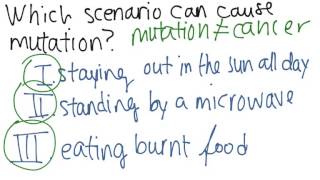 Which scenario can cause
mutation? mutation ≠ cancer
I. staying out in the sun all day
II. standing by a microwave
III. eating burnt food